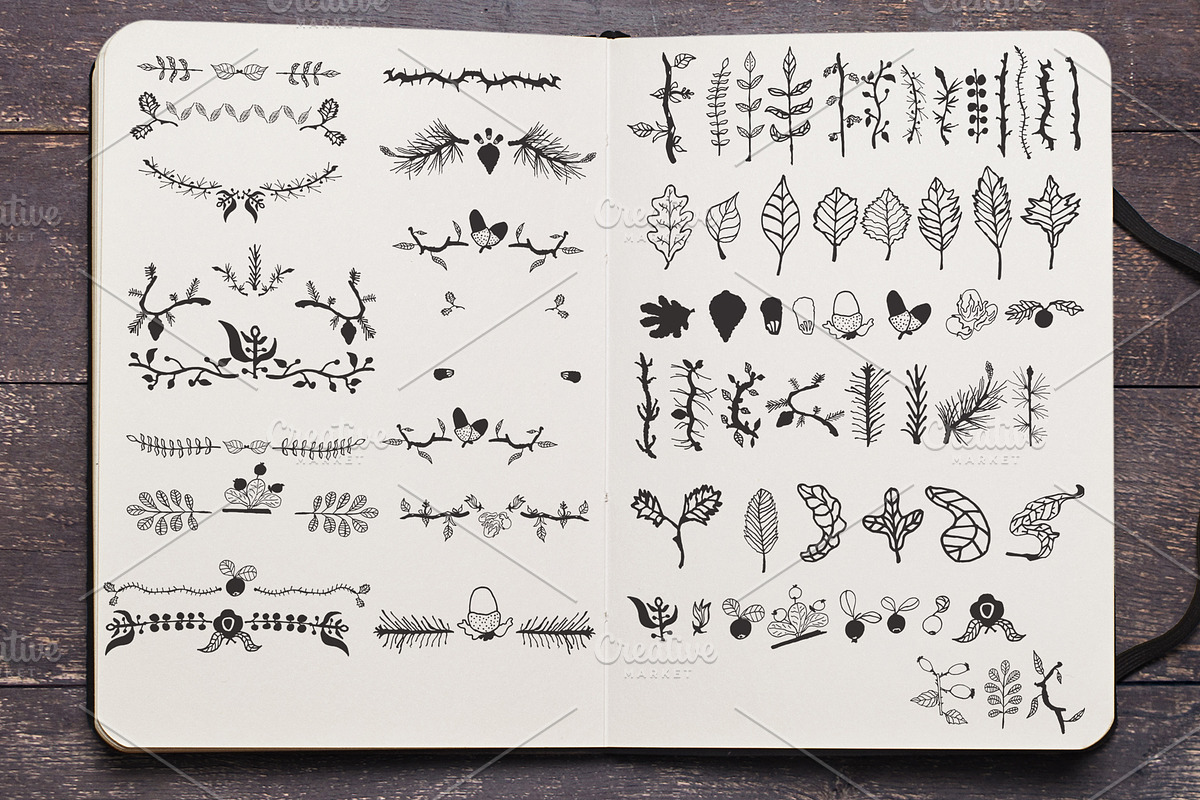 Creative
MARKET
Creative
MARKET
Creative
Creative
MARKET
Creative
MARKET
Creative
MARKET
Creative
Creative
MARKET